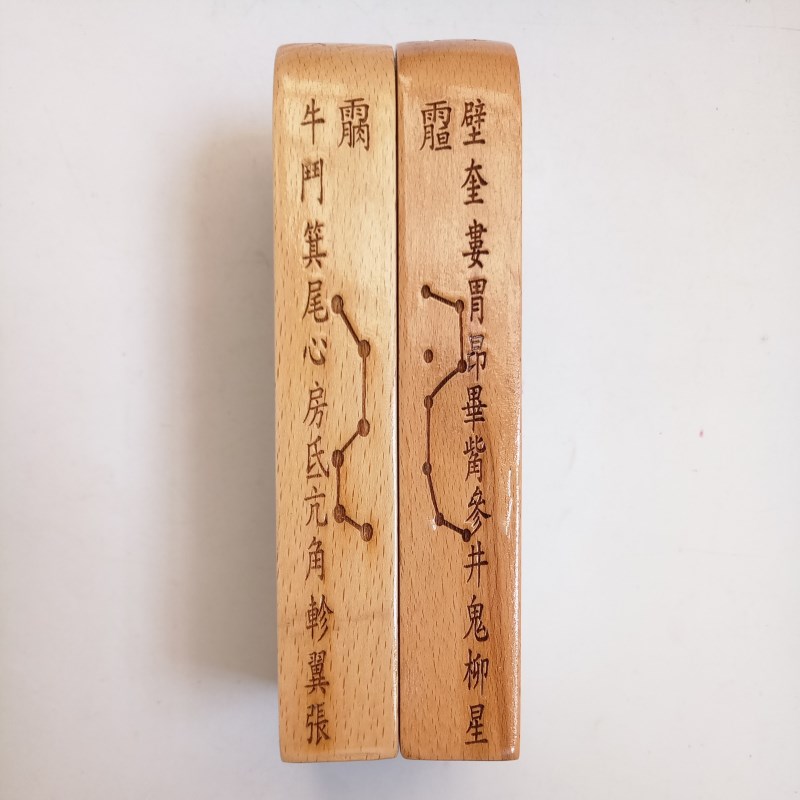 壁奎婁胃昴畢觜參井鬼柳星
牛鬥箕尾心房氐亢角軫翼張